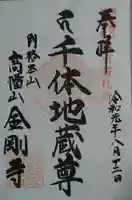 奉拝
令和元年八月十二日
千体地蔵尊
別格本山
高幡山
金剛寺